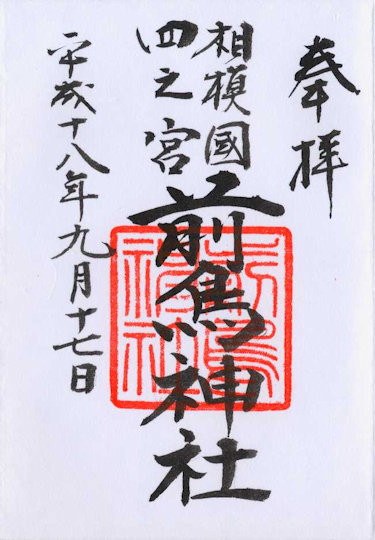 奉拝
相模國
四之宮
前鳥神社
平成十八年九月十七日
前鳥神社